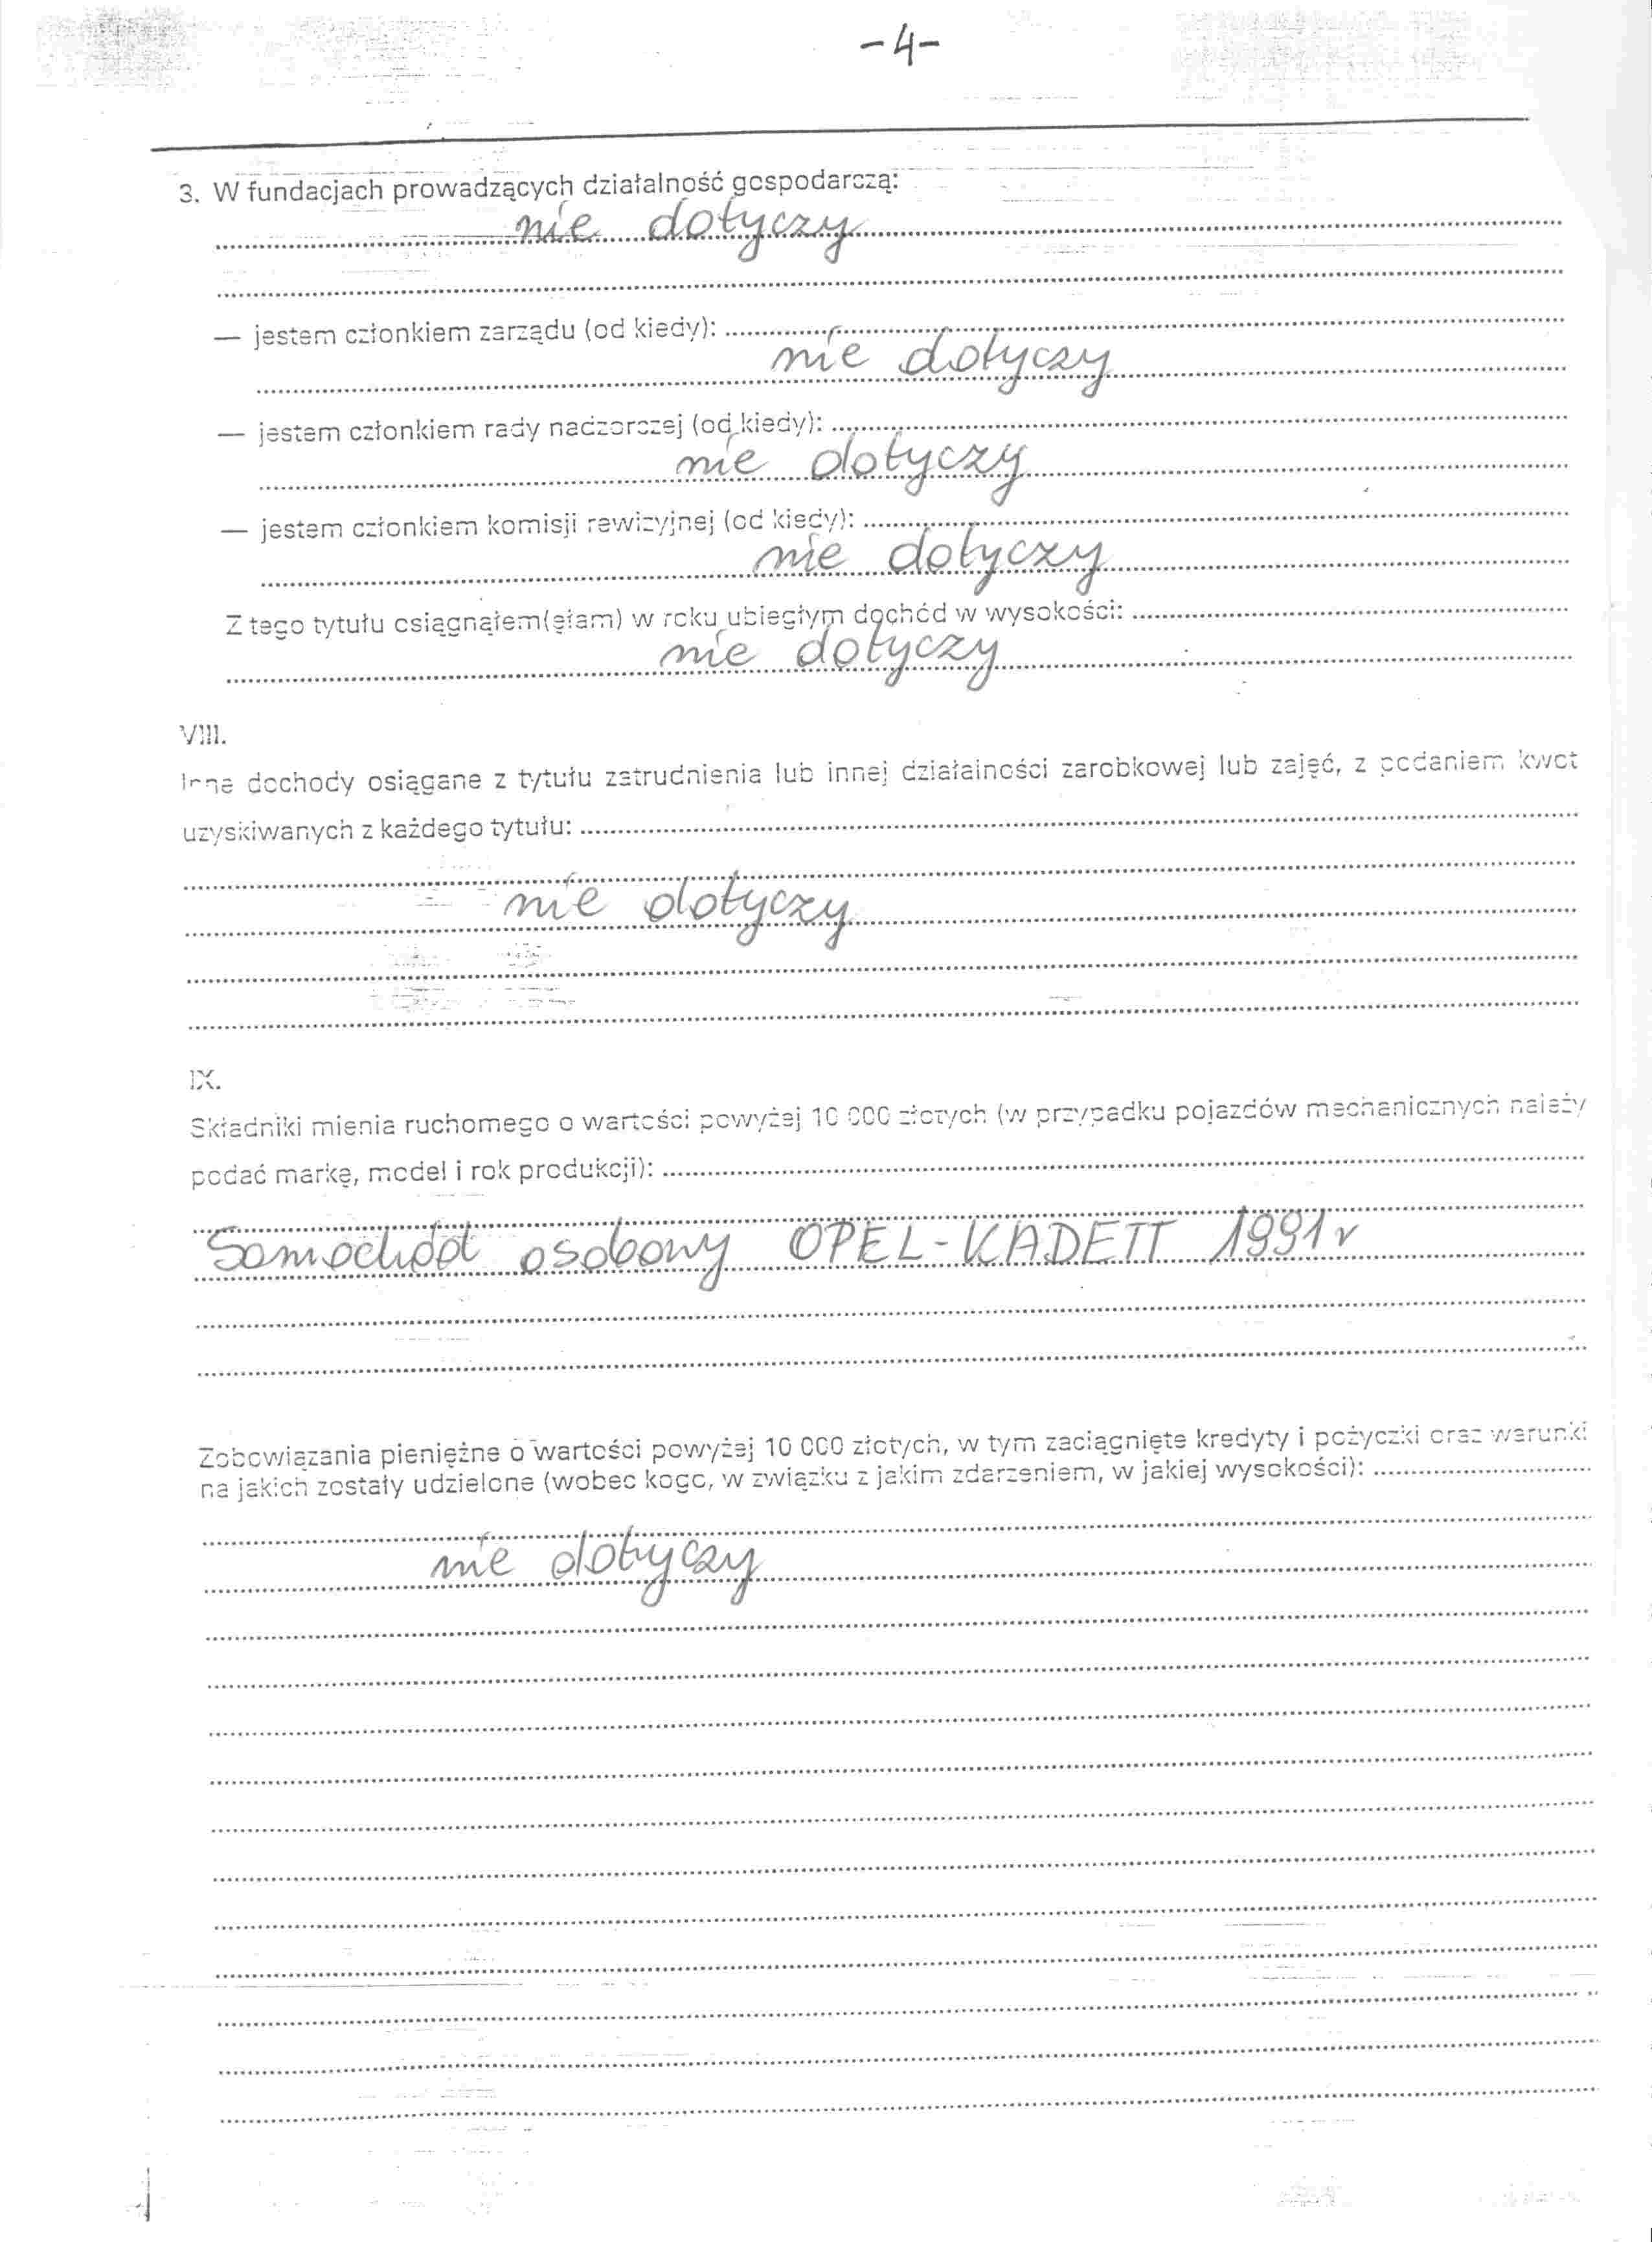 -4-
3. W fundacjach prowadzących działalność gospodarczą:
nie dotyczy
— jestem członkiem zarządu (od kiedy):
nie dotyczy
— jestem członkiem rady nadzorczej (od kiedy):
nie dotyczy
— jestem członkiem komisji rewizyjnej (od kiedy):
nie dotyczy
Z tego tytułu osiągnąłem(ęłam) w roku ubiegłym dochód w wysokości:
nie dotyczy
VIII.
Inne dochody osiągane z tytułu zatrudnienia lub innej działalności zarobkowej lub zajęć, z podaniem kwot
uzyskiwanych z każdego tytułu:
nie dotyczy
IX.
Składniki mienia ruchomego o wartości powyżej 10 000 złotych (w przypadku pojazdów mechanicznych należy
podać markę, model i rok produkcji):
Samochód osobowy OPEL-KADETT 1991r
Zobowiązania pieniężne o wartości powyżej 10 000 złotych, w tym zaciągnięte kredyty i pożyczki oraz warunki
na jakich zostały udzielone (wobec kogo, w związku z jakim zdarzeniem, w jakiej wysokości):
nie dotyczy